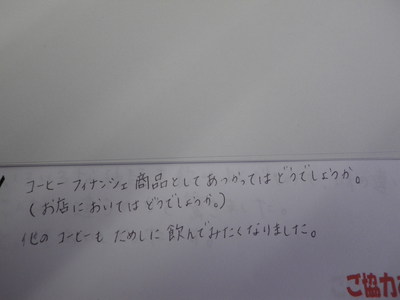 コーヒー フィナンシェ 商品としてあつかってはどうでしょうか。
(お店においてはどうでしょうか。)
他のコーヒーも ためしに 飲んでみたくなりました。
ご協力